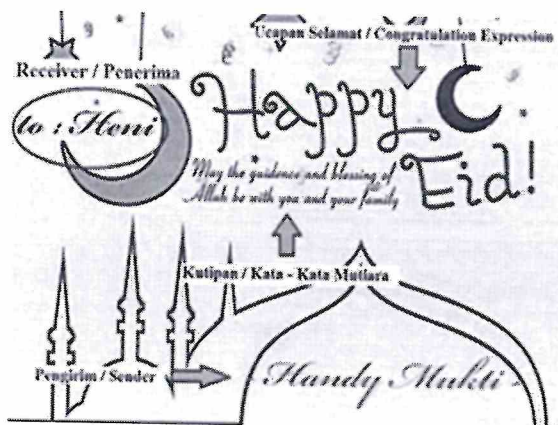 Ucapan Selamat / Congratulation Expression
Receiver / Penerima
to : Heni
Happy
Eid!
May the guidence and blessing of
Allah be with you and your family
Kutipan / Kata - Kata Mutiara
Pengirim / Sender
Handy Mukti